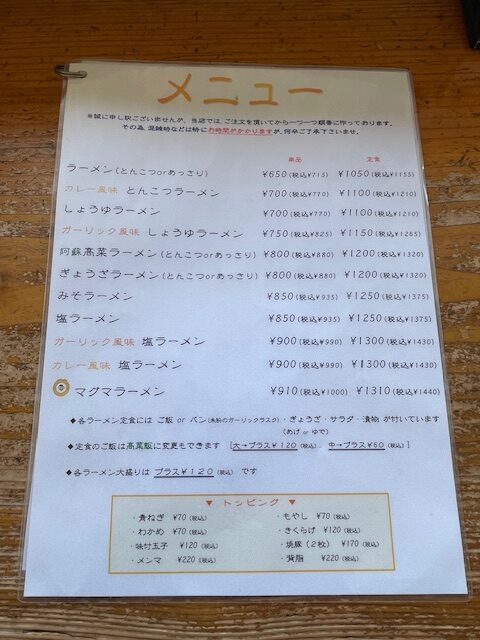 メニュー
※誠に申し訳ございませんが、当店では、ご注文を頂いてから一つ一つ順番に作っております。
その為、混雑時などは特にお時間がかかりますが、何卒ご了承下さいませ。
単品 定食
ラーメン(とんこつorあっさり) ¥650(税込¥715) ¥1050(税込¥1155)
カレー風味 とんこつラーメン ¥700(税込¥770) ¥1100(税込¥1210)
しょうゆラーメン ¥700(税込¥770) ¥1100(税込¥1210)
ガーリック風味 しょうゆラーメン ¥750(税込¥825) ¥1150(税込¥1265)
阿蘇高菜ラーメン(とんこつorあっさり) ¥800(税込¥880) ¥1200(税込¥1320)
ぎょうざラーメン(とんこつorあっさり) ¥800(税込¥880) ¥1200(税込¥1320)
みそラーメン ¥850(税込¥935) ¥1250(税込¥1375)
塩ラーメン ¥850(税込¥935) ¥1250(税込¥1375)
ガーリック風味 塩ラーメン ¥900(税込¥990) ¥1300(税込¥1430)
カレー風味 塩ラーメン ¥900(税込¥990) ¥1300(税込¥1430)
マグマラーメン ¥910(税込¥1000) ¥1310(税込¥1440)
◆各ラーメン定食には ご飯 or パン(米粉のガーリックラスク)・ぎょうざ・サラダ・漬物 が付いています
(あげ or ゆで)
◆定食のご飯は高菜飯に変更もできます [大→プラス¥120(税込) 中→プラス¥60(税込)]
◆各ラーメン大盛りは プラス¥120(税込) です
▼ トッピング ▼
・青ねぎ ¥70(税込) ・もやし ¥70(税込)
・わかめ ¥70(税込) ・きくらげ ¥120(税込)
・味付玉子 ¥120(税込) ・焼豚(2枚) ¥170(税込)
・メンマ ¥220(税込) ・背脂 ¥220(税込)